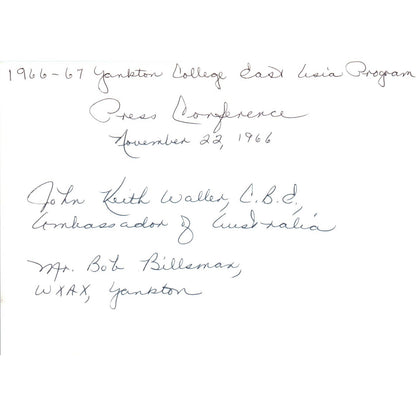 1966-67 Yankton College East Asia Program
Press Conference
November 22, 1966
John Keith Waller, C.B.E,
Ambassador of Australia
Mr. Bob Billsman,
WXAX, Yankton